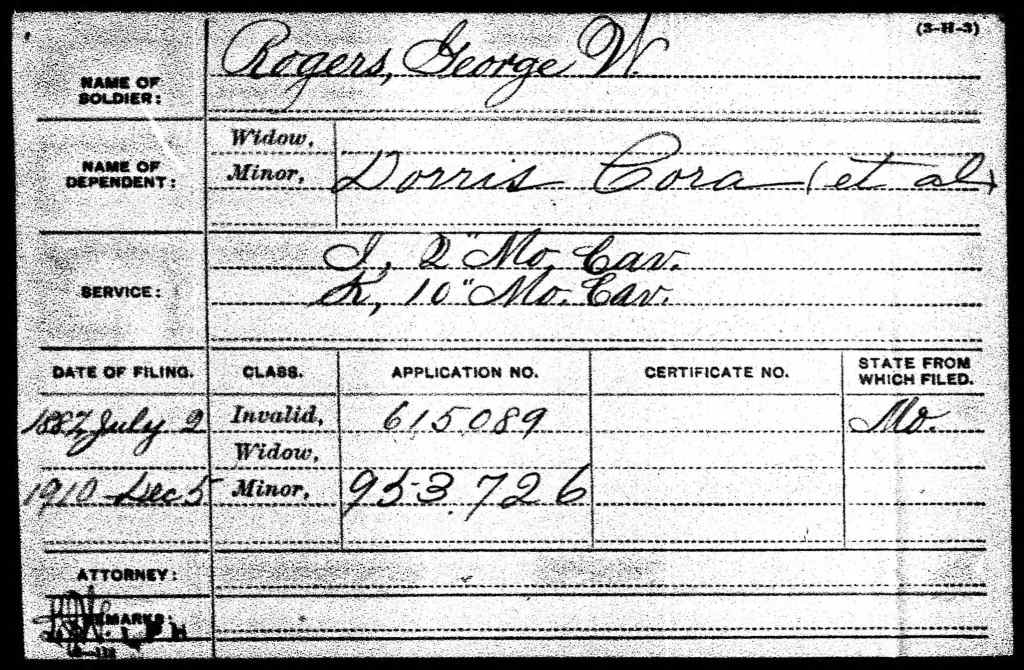 (3-H-3)
NAME OF SOLDIER: Rogers, George W.
NAME OF DEPENDENT:
Widow,
Minor, Dorris Cora (et al)
SERVICE:
I, 2" Mo. Cav.
K, 10" Mo. Cav.
DATE OF FILING. CLASS. APPLICATION NO. CERTIFICATE NO. STATE FROM WHICH FILED.
1887 July 2 Invalid, 615089 Mo.
Widow,
1910 Dec 5 Minor, 953.726
ATTORNEY:
REMARKS: